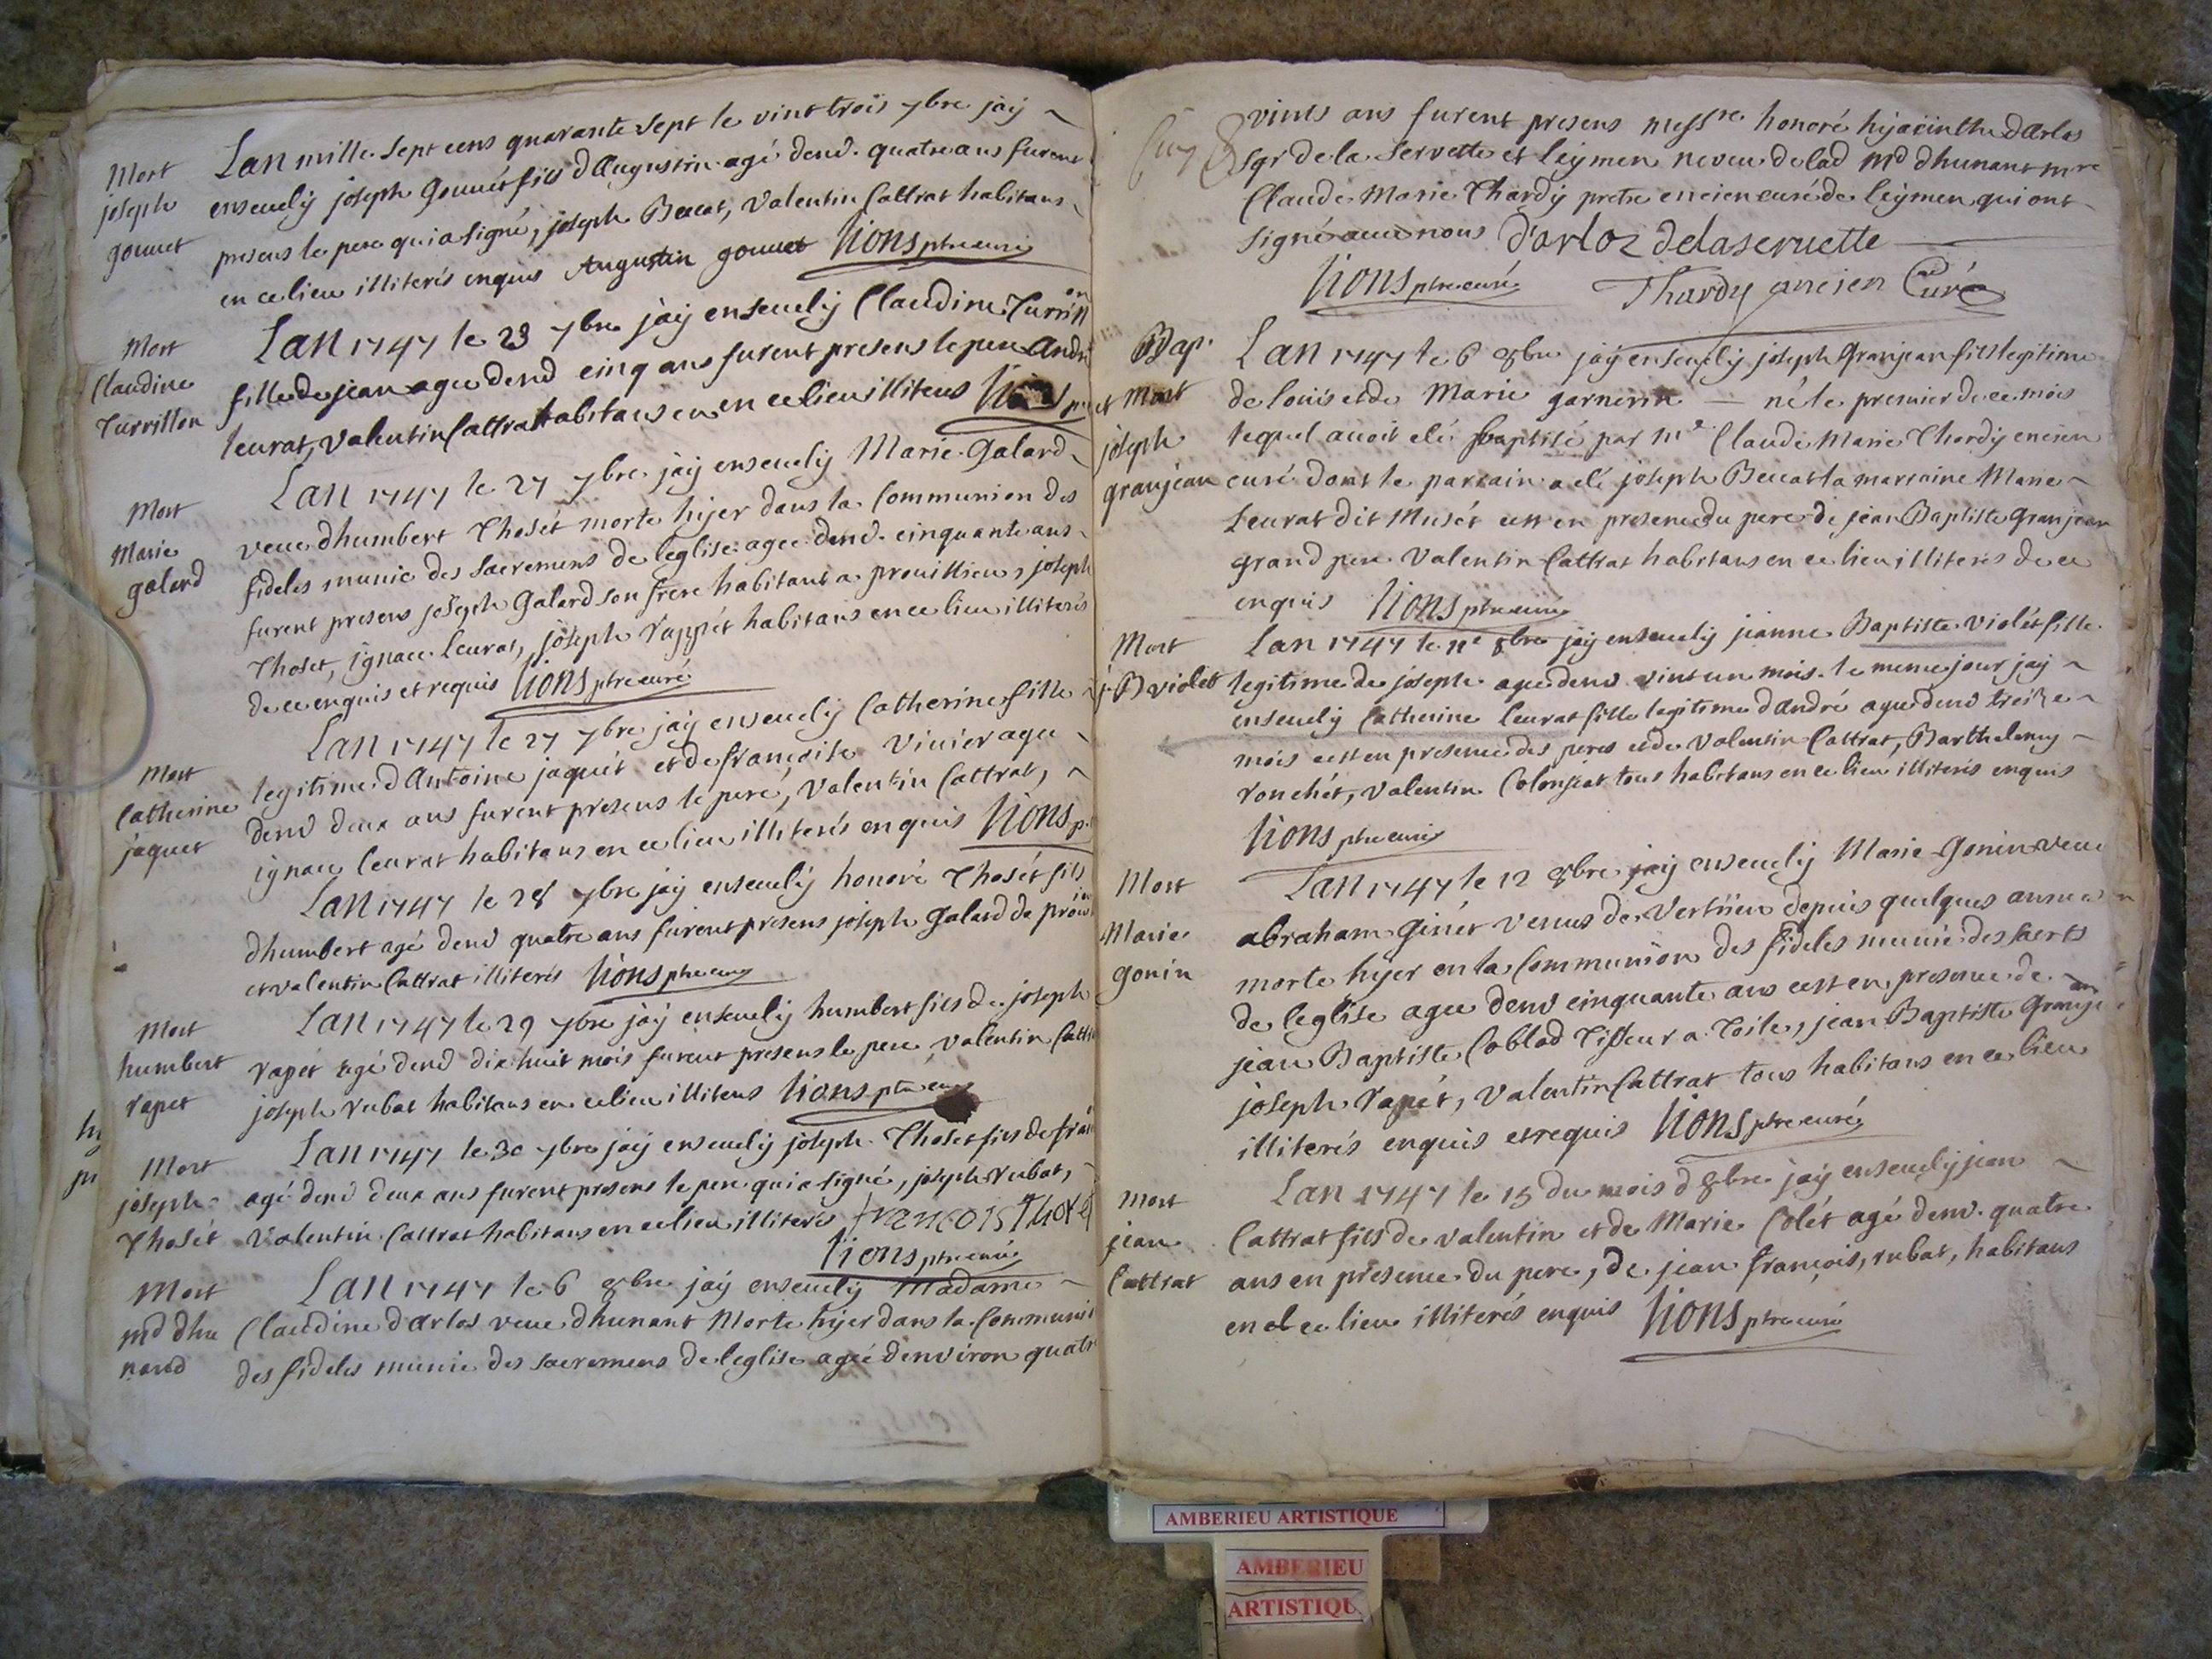 Mort
joseph
gonnet
Lan mille sept cens quarante sept le vint trois 7bre jaÿ
ensevely joseph Gonnét fils d Augustin agé denv. quatre ans furent
presens le pere qui a signé, joseph Beccat, Valentin Cattrat habitans
en ce lieu illiterés enquis Augustin gonnet Lions ptre curé
Mort
Claudine
Turrillon
Lan 1747 le 23 7bre jaÿ ensevely Claudine
fille de jean agee denv cinq ans furent presens le pere André
leurat, Valentin Cattrat habitans en ce lieu illiterés Lions
Mort
Marie
galard
Lan 1747 le 27 7bre jaÿ ensevely Marie Galard
veue dhumbert Thosét morte hijer dans la Communion des
fideles munie des sacremens de leglise agee denv. cinquante ans
furent presens joseph Galard son frere habitant a prouillieu, joseph
Thoset, ignace leurat, joseph rappét habitans en ce lieu illiterés
de ce enquis et requis Lions ptre curé
Mort
Catherine
jaquet
Lan 1747 le 27 7bre jaÿ ensevely Catherine fille
legitime d Antoine jaquét et de françoise Vivier agee
denv deux ans furent presens le pere, Valentin Cattrat,
ignace leurat habitans en ce lieu illiterés enquis Lions p.
Lan 1747 le 28 7bre jaÿ ensevelÿ honoré Thosét fils
dhumbert agé denv quatre ans furent presens joseph Galard de
et valentin Cattrat illiterés Lions ptre curé
Mort
humbert
rapet
Lan 1747 le 29 7bre jaÿ ensevely humbert fils de joseph
rapét agé denv dix huit mois furent presens le pere, Valentin
joseph rubat habitans en ce lieu illiterés Lions ptre curé
Mort
joseph
Thosét
Lan 1747 le 30 7bre jaÿ ensevely joseph Thoset fils de
agé denv deux ans furent presens le pere qui a signé, joseph rubat,
Valentin Cattrat habitans en ce lieu illiterés françois
Lions ptre curé
Mort
md dhu
nand
Lan 1747 le 6 8bre jaÿ ensevely Madame
Claudine d Arlos veue dhunant Morte hijer dans la
des fideles munie des sacremens de leglise agée denviron quatre
vints ans furent presens messre honoré hijacinthe d Arlos
sgr de la Servette et leymen neveu de lad md dhunant mre
Claude Marie Thardÿ pretre encien curé de leÿmen qui ont
signé avec nous D'arloz delaseruette
Lions ptre curé Thardy ancien Curé
Bap.
et Mort
joseph
granjean
Lan 1747 le 6 8bre jaÿ ensevely joseph Granjean fils legitime
de loüis et de Marie garnerin — né le premier de ce mois
lequel avoit eté baptisé par mre Claude Marie Thardÿ encien
curé dont le parrain a eté joseph Beccat la marraine Marie
Leurat dit Musét cest en presence du pere de jean Baptiste Granjean
grand pere Valentin Cattrat habitans en ce lieu illiterés de ce
enquis Lions ptre curé
Mort
j. B violet
Lan 1747 le 11e 8bre jaÿ ensevely jeanne Baptiste violét fille
legitime de joseph agee denv vint un mois. le meme jour jaÿ
ensevely Catherine leurat fille legitime d André agee denv treize
mois cest en presence des peres et de Valentin Cattrat, Barthelemy
ronchét, Valentin Colonjeat tous habitans en ce lieu illiterés enquis
Lions ptre curé
Mort
Marie
gonin
Lan 1747 le 12 8bre jaÿ ensevely Marie Gonin veue
abraham Ginét venus de Vertrieu depuis quelques
morte hijer en la Communion des fideles munie des sacrts
de leglise agee denv cinquante ans cest en presence de
jean Baptiste Coblod Tisseur a Toile, jean Baptiste Granjean
joseph rapét, Valentin Cattrat tous habitans en ce lieu
illiterés enquis et requis Lions ptre curé
Mort
jean
Cattrat
Lan 1747 le 15 du mois d 8bre jaÿ ensevely jean
Cattrat fils de valentin et de Marie Colét agé denv. quatre
ans en presence du pere, de jean françois, rubat, habitans
en ce lieu illiterés enquis Lions ptre curé
AMBERIEU ARTISTIQUE
AMBERIEU
ARTISTIQU